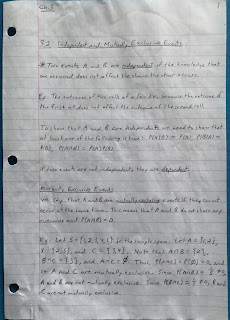 Ch. 3
1
3.2 Independent and Mutually Exclusive Events
* Two events A and B are independent if the knowledge that
one occurred does not affect the chance the other occurs.
Ex: The outcomes of two rolls of a fair die, because the outcome of
the first roll does not affect the outcome of the second roll.
To show that A and B are independent we need to show that
at least one of the following is true: P(A|B) = P(A), P(B|A) =
P(B), P(A∩B) = P(A)P(B).
If two events are not independent, they are dependent.
Mutually Exclusive Events
We say that A and B are mutually exclusive events if they cannot
occur at the same time. This means that A and B do not share any
outcomes and P(A∩B) = 0.
Ex: Let S = be the sample space. Let A = {1,2},
and C = Note that A∩B = {2},
B∩C = {3}, and A∩C = Ø. Thus, P(A∩C) = P(Ø) = 0, and
so A and C are mutually exclusive. Since P(A∩B) = ≠ 0,
A and B are not mutually exclusive. Since P(B∩C) = ≠ 0, B and
C are not mutually exclusive.